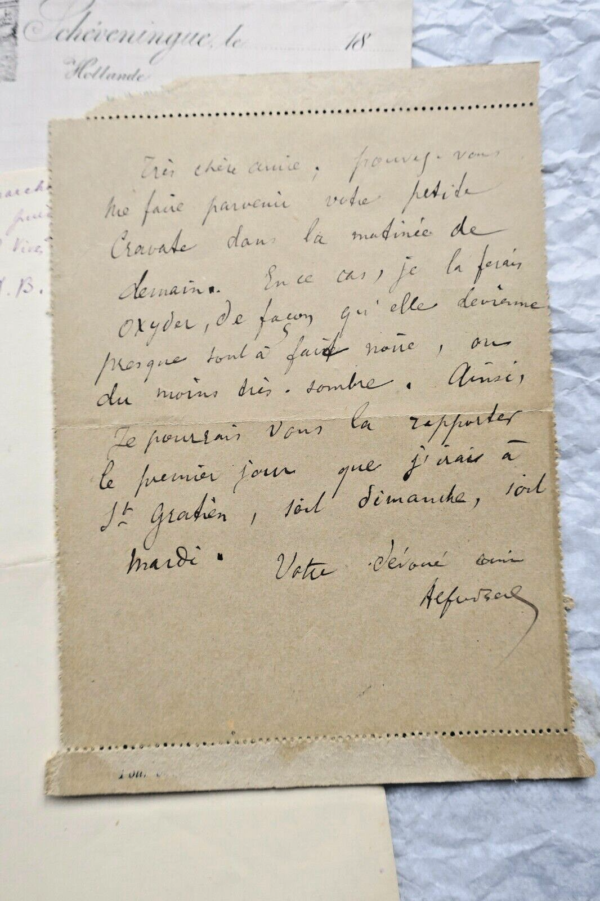 Schéveningue, le 18
Hollande
Très chère amie, pouvez-vous
me faire parvenir votre petite
Cravate dans la matinée de
demain. En ce cas, je la ferais
oxyder, de façon qu'elle devienne
presque tout à fait noire, ou
du moins très-sombre. Ainsi,
Je pourrais vous la rapporter
le premier jour que j'irais à
St Gratien, soit dimanche, soit
mardi. Votre dévoué ami